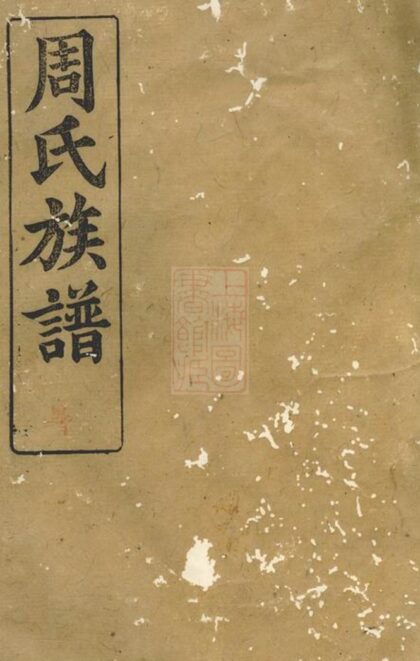 周氏族譜
上海圖書館藏